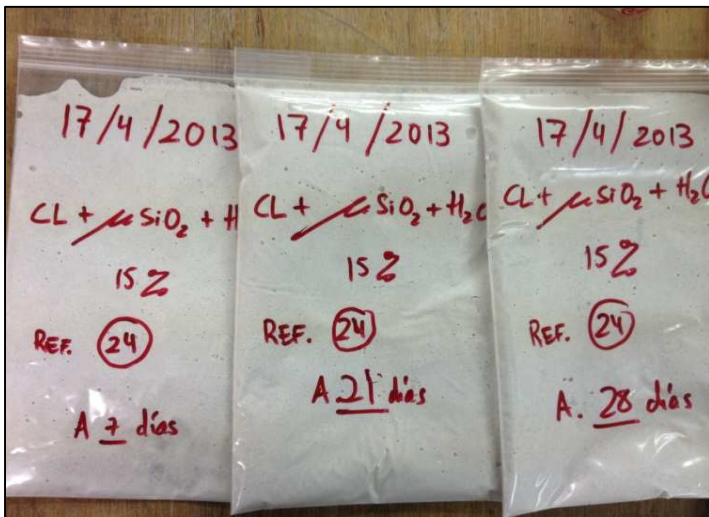 17/4/2013
CL + µSiO₂ + H
15%
REF. 24
A 7 días
17/4/2013
CL + µSiO₂ + H₂O
15%
REF. 24
A 21 días
17/4/2013
CL + µSiO₂ + H₂O
15%
REF. 24
A. 28 días